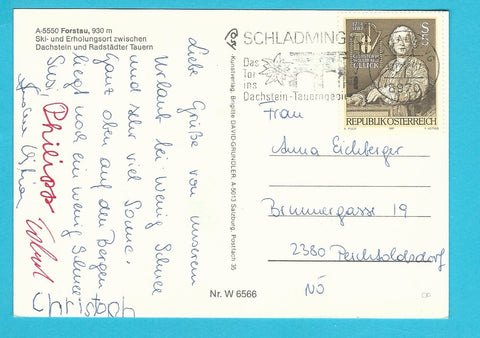 A-5550 Forstau, 930 m
Ski- und Erholungsort zwischen
Dachstein und Radstädter Tauern
Liebe Grüße von unserem
Urlaub bei wenig Schnee
und sehr viel Sonne.
Ganz oben auf den Bergen
liegt noch ein wenig Schnee
Susi,
Philipp
Christoph
Kunstverlag Brigitte DAVID-GRÜNDLER, A-5013 Salzburg, Postfach 35
Nr. W 6566
SCHLADMING
Das
Tor
ins
Dachstein-Tauerngebi
8970
S5
CHRISTOPH
WILLIBALD
GLUCK
REPUBLIK ÖSTERREICH
Frau
Anna Eichberger
Brunnergasse 19
2380 Perchtoldsdorf
NÖ